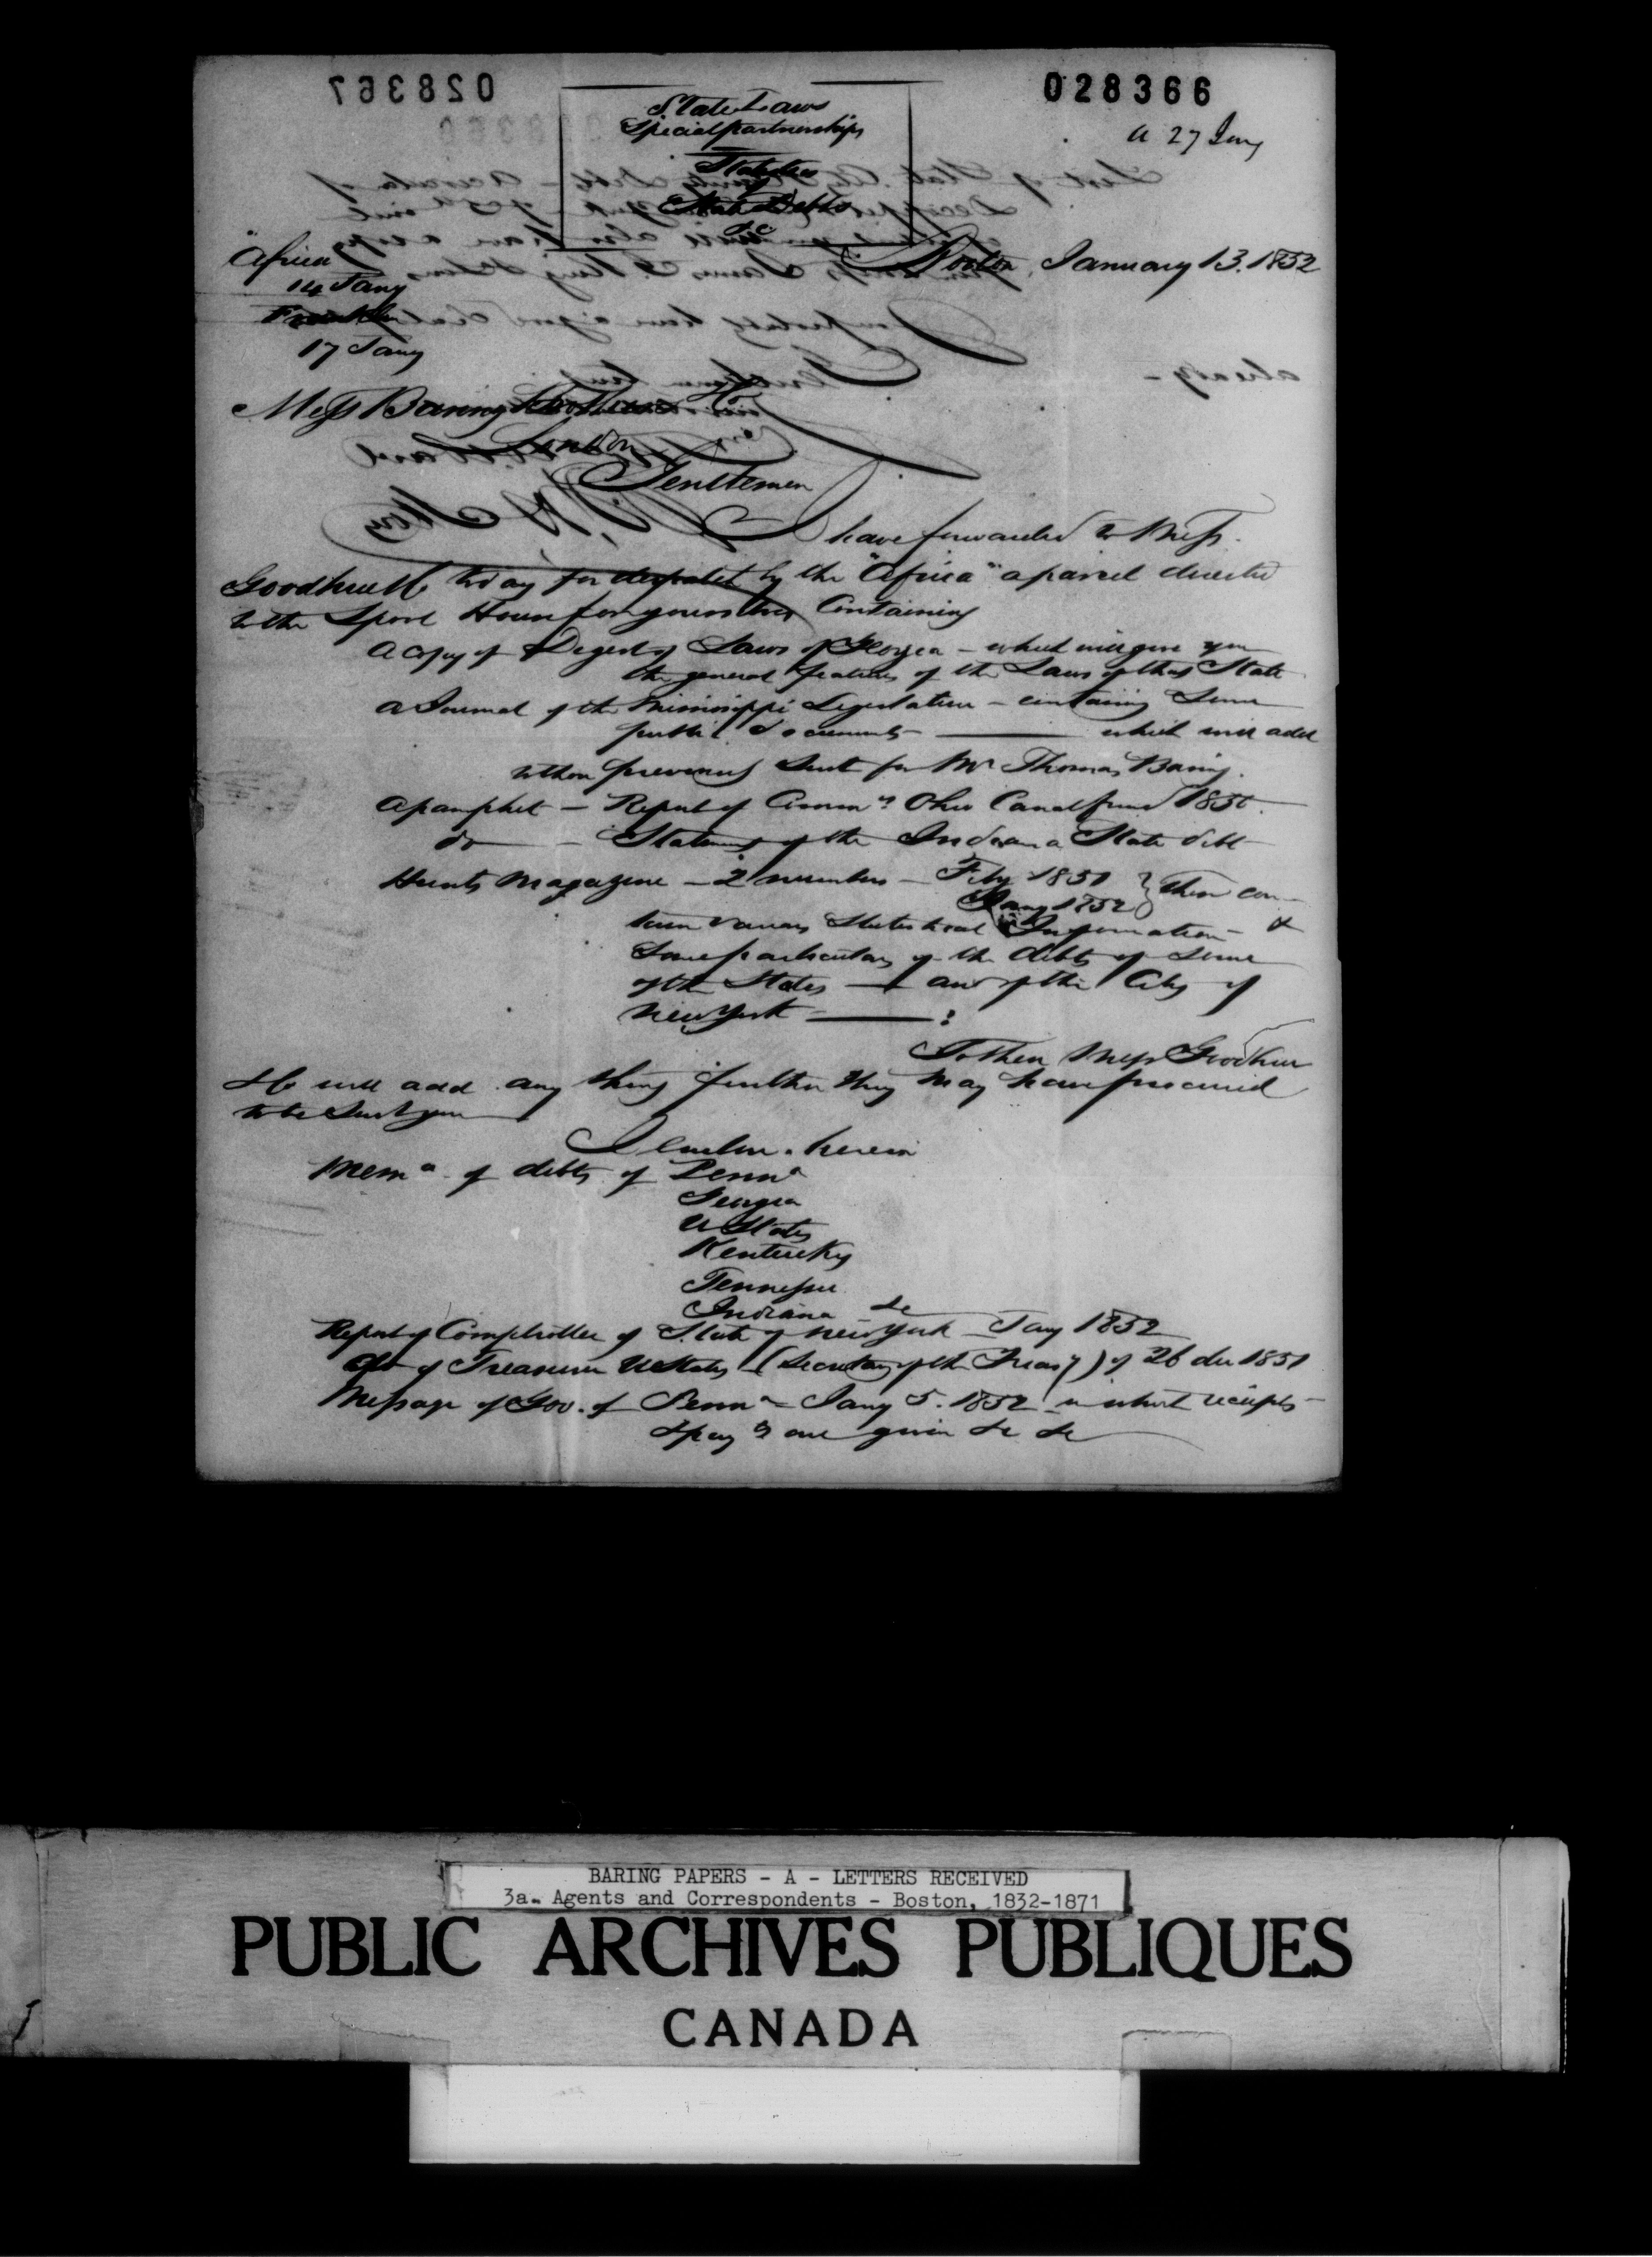 028366
State Laws
Special partnerships
Statutes
State Debts
&c
a 27 Jany
Boston, January 13. 1852
"Africa
14 Jany
Franklin
17 Jany
Mess Baring Brothers & Co
London
Gentlemen
I have forwarded to Mess.
Goodhue & Co today for despatch by the "Africa" a parcel directed
to the Lpool House for yourselves Containing
A copy of Digest of Laws of Georgia - which will give you
the general features of the Laws of that State
A Journal of the Mississippi Legislature - containing Some
public documents - which will add
to those previously Sent for Mr Thomas Baring.
A pamphlet - Report of Commrs Ohio Canal fund 1850.
do - Statement of the Indiana State debt
Hunts Magazine - 2 numbers - Feby 1851 } These con-
Jany 1852
tain various Statistical Information - &
Some particulars of the debts of Some
of the States - and of the City of
New York -
To these Mess Goodhue
& Co will add any thing further they may have procured
to be Sent you
I enclose herein
Mema of debts of Penna
Georgia
U States
Kentucky
Tennessee
Indiana &c
Report of Comptroller of State of New York - Jany 1852
do of Treasurer U States (Secretary of the Treasy) of 26 dec 1851
Message of Gov. of Penna - Jany 5. 1852 in which receipts
& paymts are given &c &c
BARING PAPERS - A - LETTERS RECEIVED
3a. Agents and Correspondents - Boston, 1832-1871
PUBLIC ARCHIVES PUBLIQUES
CANADA